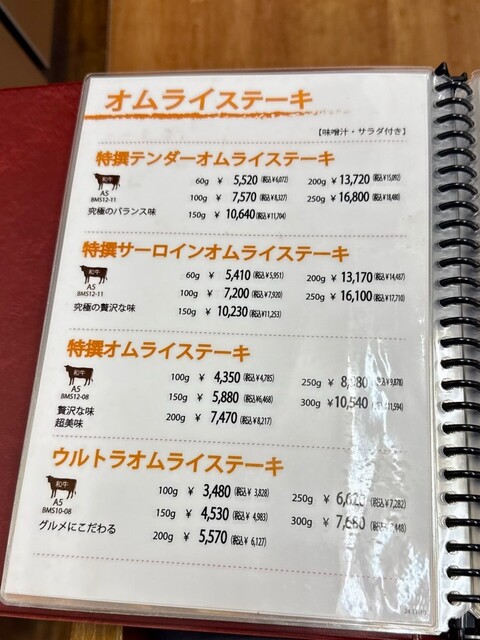 オムライステーキ
【味噌汁・サラダ付き】
特撰テンダーオムライステーキ
和牛 A5 BMS12-11
究極のバランス味
60g ¥ 5,520 (税込¥6,072) 200g ¥ 13,720 (税込¥15,092)
100g ¥ 7,570 (税込¥8,327) 250g ¥ 16,800 (税込¥18,480)
150g ¥ 10,640 (税込¥11,704)
特撰サーロインオムライステーキ
和牛 A5 BMS12-11
究極の贅沢な味
60g ¥ 5,410 (税込¥5,951) 200g ¥ 13,170 (税込¥14,487)
100g ¥ 7,200 (税込¥7,920) 250g ¥ 16,100 (税込¥17,710)
150g ¥ 10,230 (税込¥11,253)
特撰オムライステーキ
和牛 A5 BMS12-08
贅沢な味
超美味
100g ¥ 4,350 (税込¥4,785) 250g ¥ 8,980 (税込¥9,878)
150g ¥ 5,880 (税込¥6,468) 300g ¥ 10,540 11,594)
200g ¥ 7,470 (税込¥8,217)
ウルトラオムライステーキ
和牛 A5 BMS10-08
グルメにこだわる
100g ¥ 3,480 (税込¥ 3,828) 250g ¥ 6,620 (税込¥7,282)
150g ¥ 4,530 (税込¥ 4,983) 300g ¥ 7,680 8,448)
200g ¥ 5,570 (税込¥ 6,127)